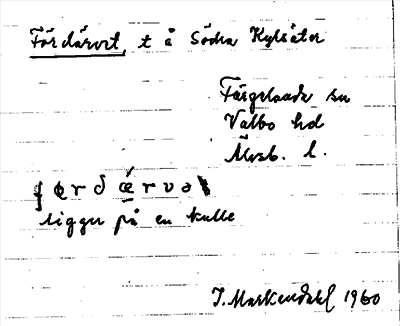 Fördärvet, t å Södra Kylsäter
Färgelanda sn
Valbo hd
Älvsb. l.
ligger på en kulle
J. Markendahl 1960